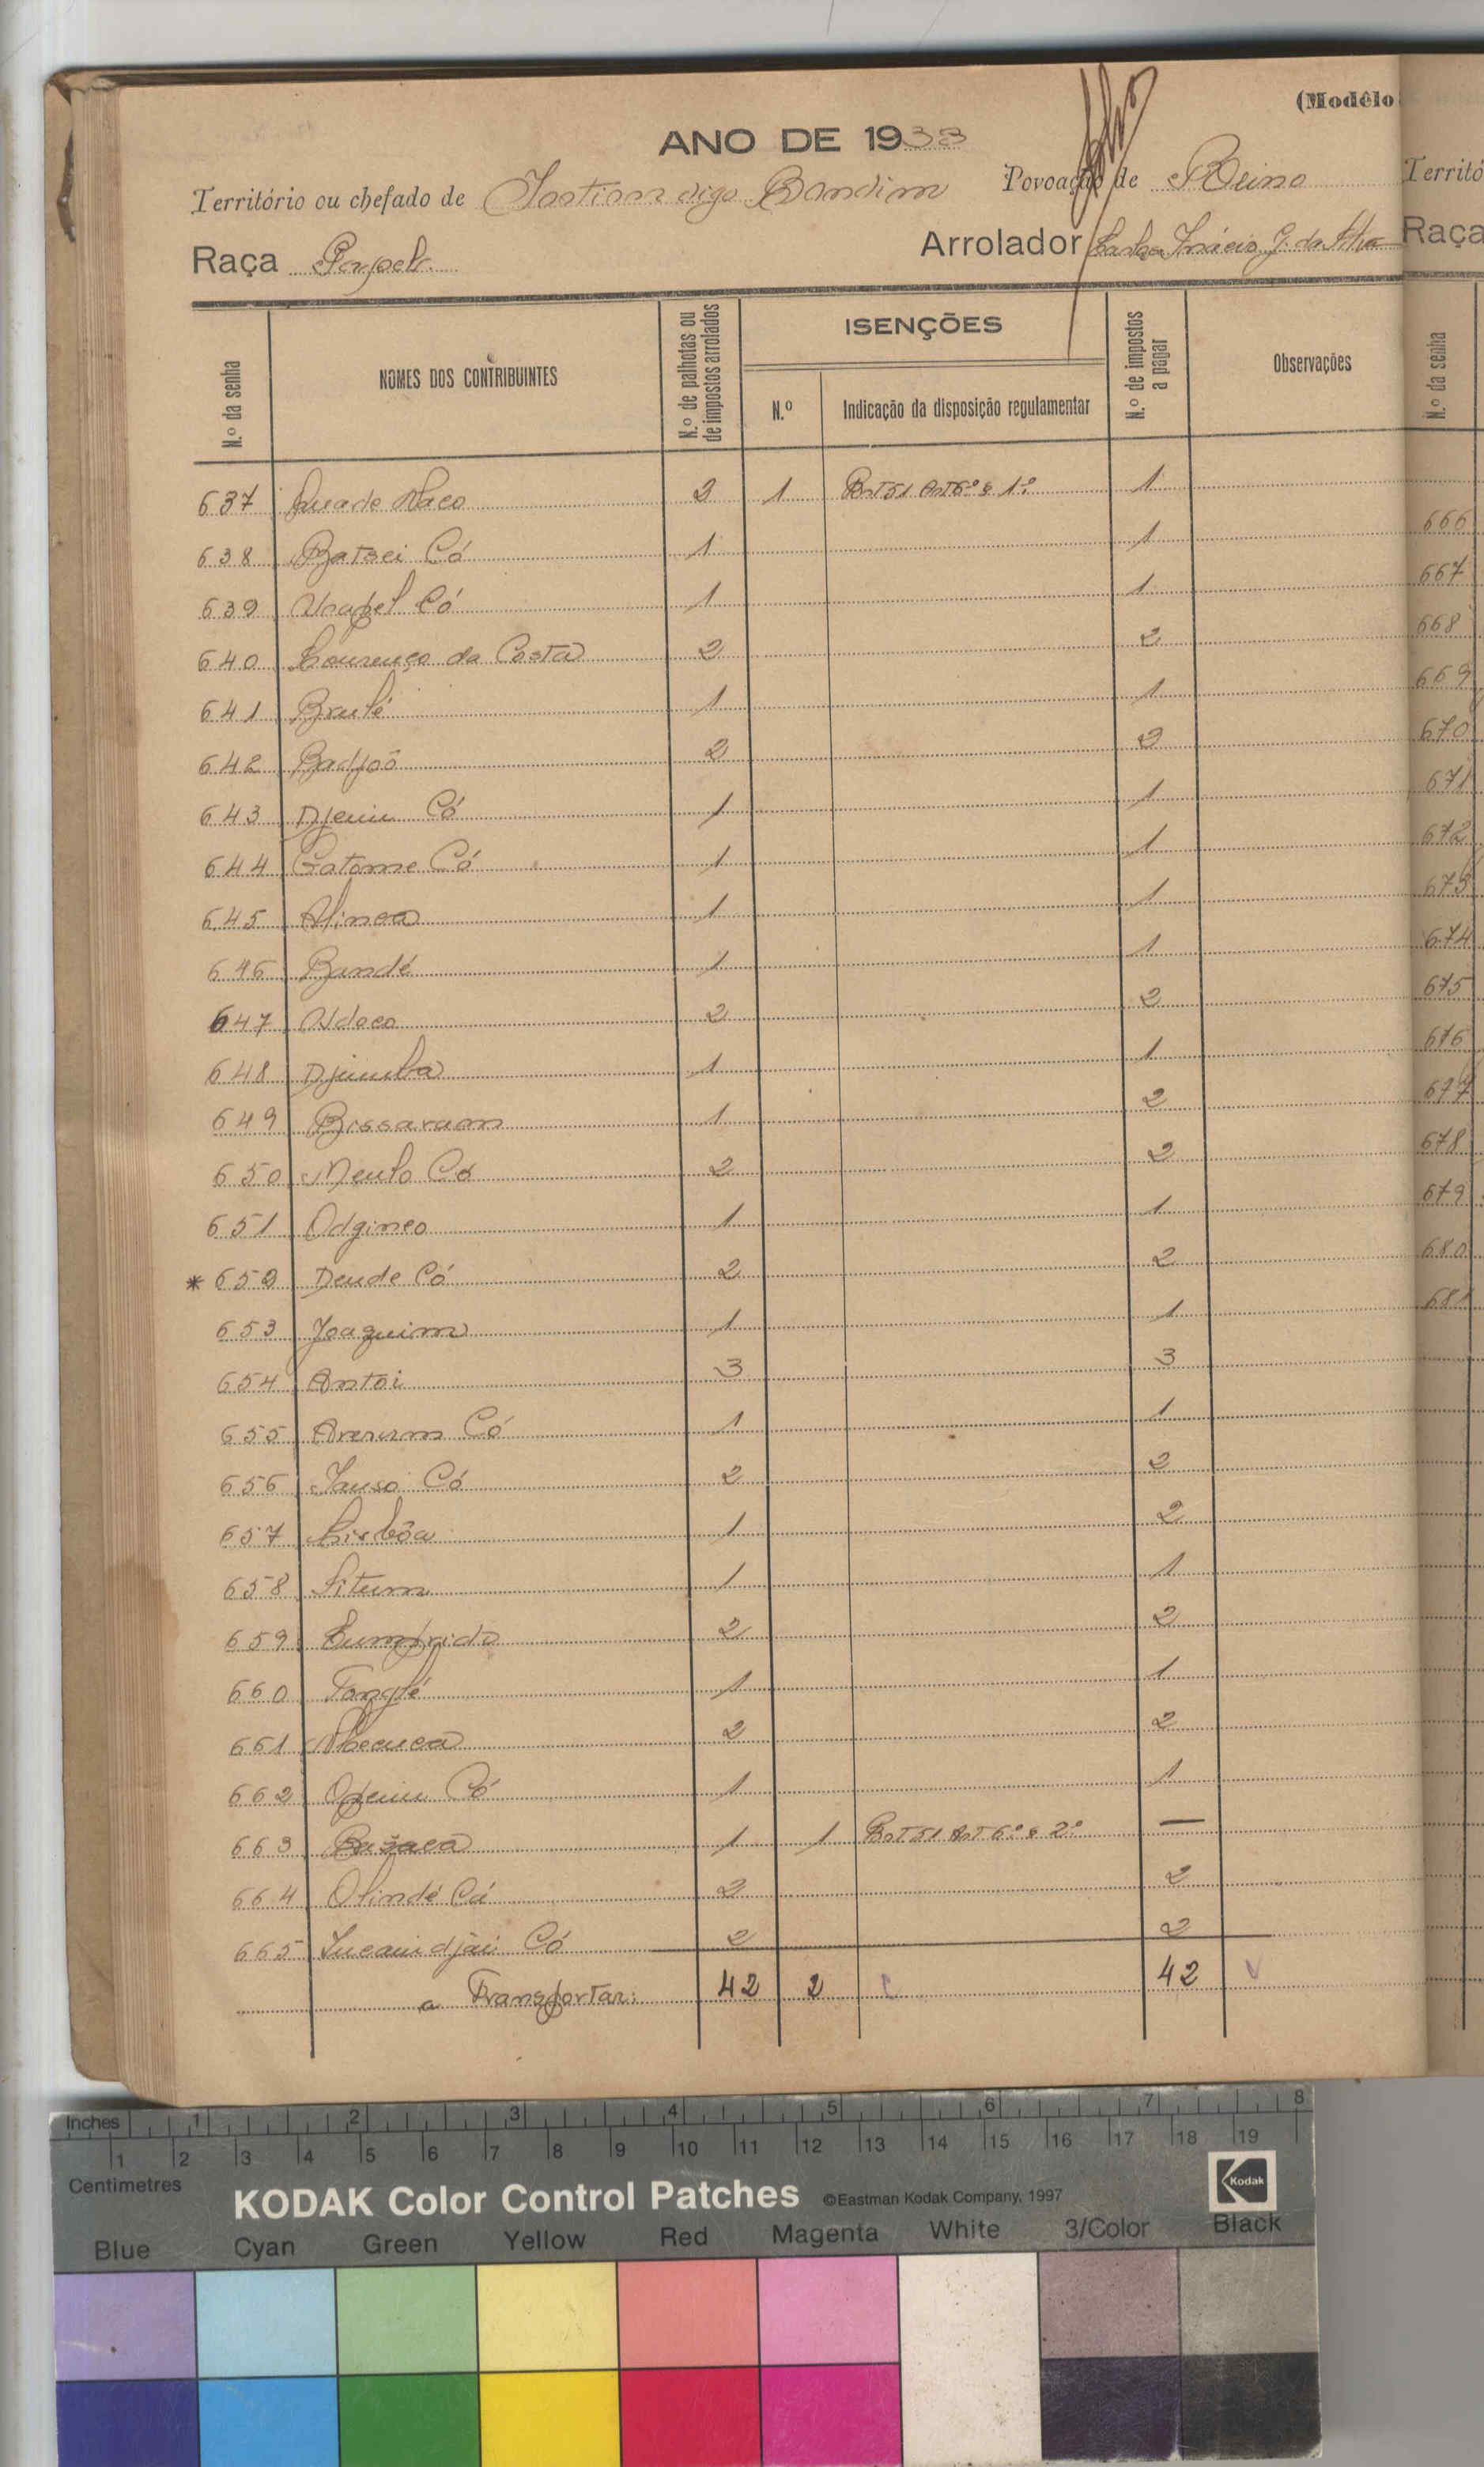 (Modêlo
ANO DE 1933
Território ou chefado de Bandim Povoação de Reino
Raça Papel. Arrolador Inácio G. da Silva
N.º da senha NOMES DOS CONTRIBUINTES N.º de palhotas ou de impostos arrolados ISENÇÕES N.º Indicação da disposição regulamentar N.º de impostos a pagar Observações
637 2 1 1
638 Batsei Có 1 1
639 Có 1 1
640 Lourenço da Costa 2 2
641 Brulé 1 1
642 Badjoō 2 2
643 Có 1 1
644 Catome Có 1 1
645 1 1
646 Bandé 1 1
647 2 2
648 Djumba 1 1
649 Bissaram 1 2
650 2 2
651 Odgineo 1 1
* 652 Deude Có 2 2
653 Joaquim 1 1
654 Antoi 3 3
655 Có 1 1
656 Có 2 2
657 Lisbôa 1 2
658 Situm 1 1
659 2 2
660 Tanglé 1 1
661 2 2
662 Có 1 1
663 1 1 —
664 Olindé Cá 2 2
665 Có 2 2
a Transportar: 42 2 42
Territó
Raça
N.º da senha
666
667
668
669
670
671
672
673
674
675
676
677
678
679
680
681
Inches 1 2 3 4 5 6 7 8
1 2 3 4 5 6 7 8 9 10 11 12 13 14 15 16 17 18 19
Centimetres
KODAK Color Control Patches ©Eastman Kodak Company, 1997 Kodak
Blue Cyan Green Yellow Red Magenta White 3/Color Black